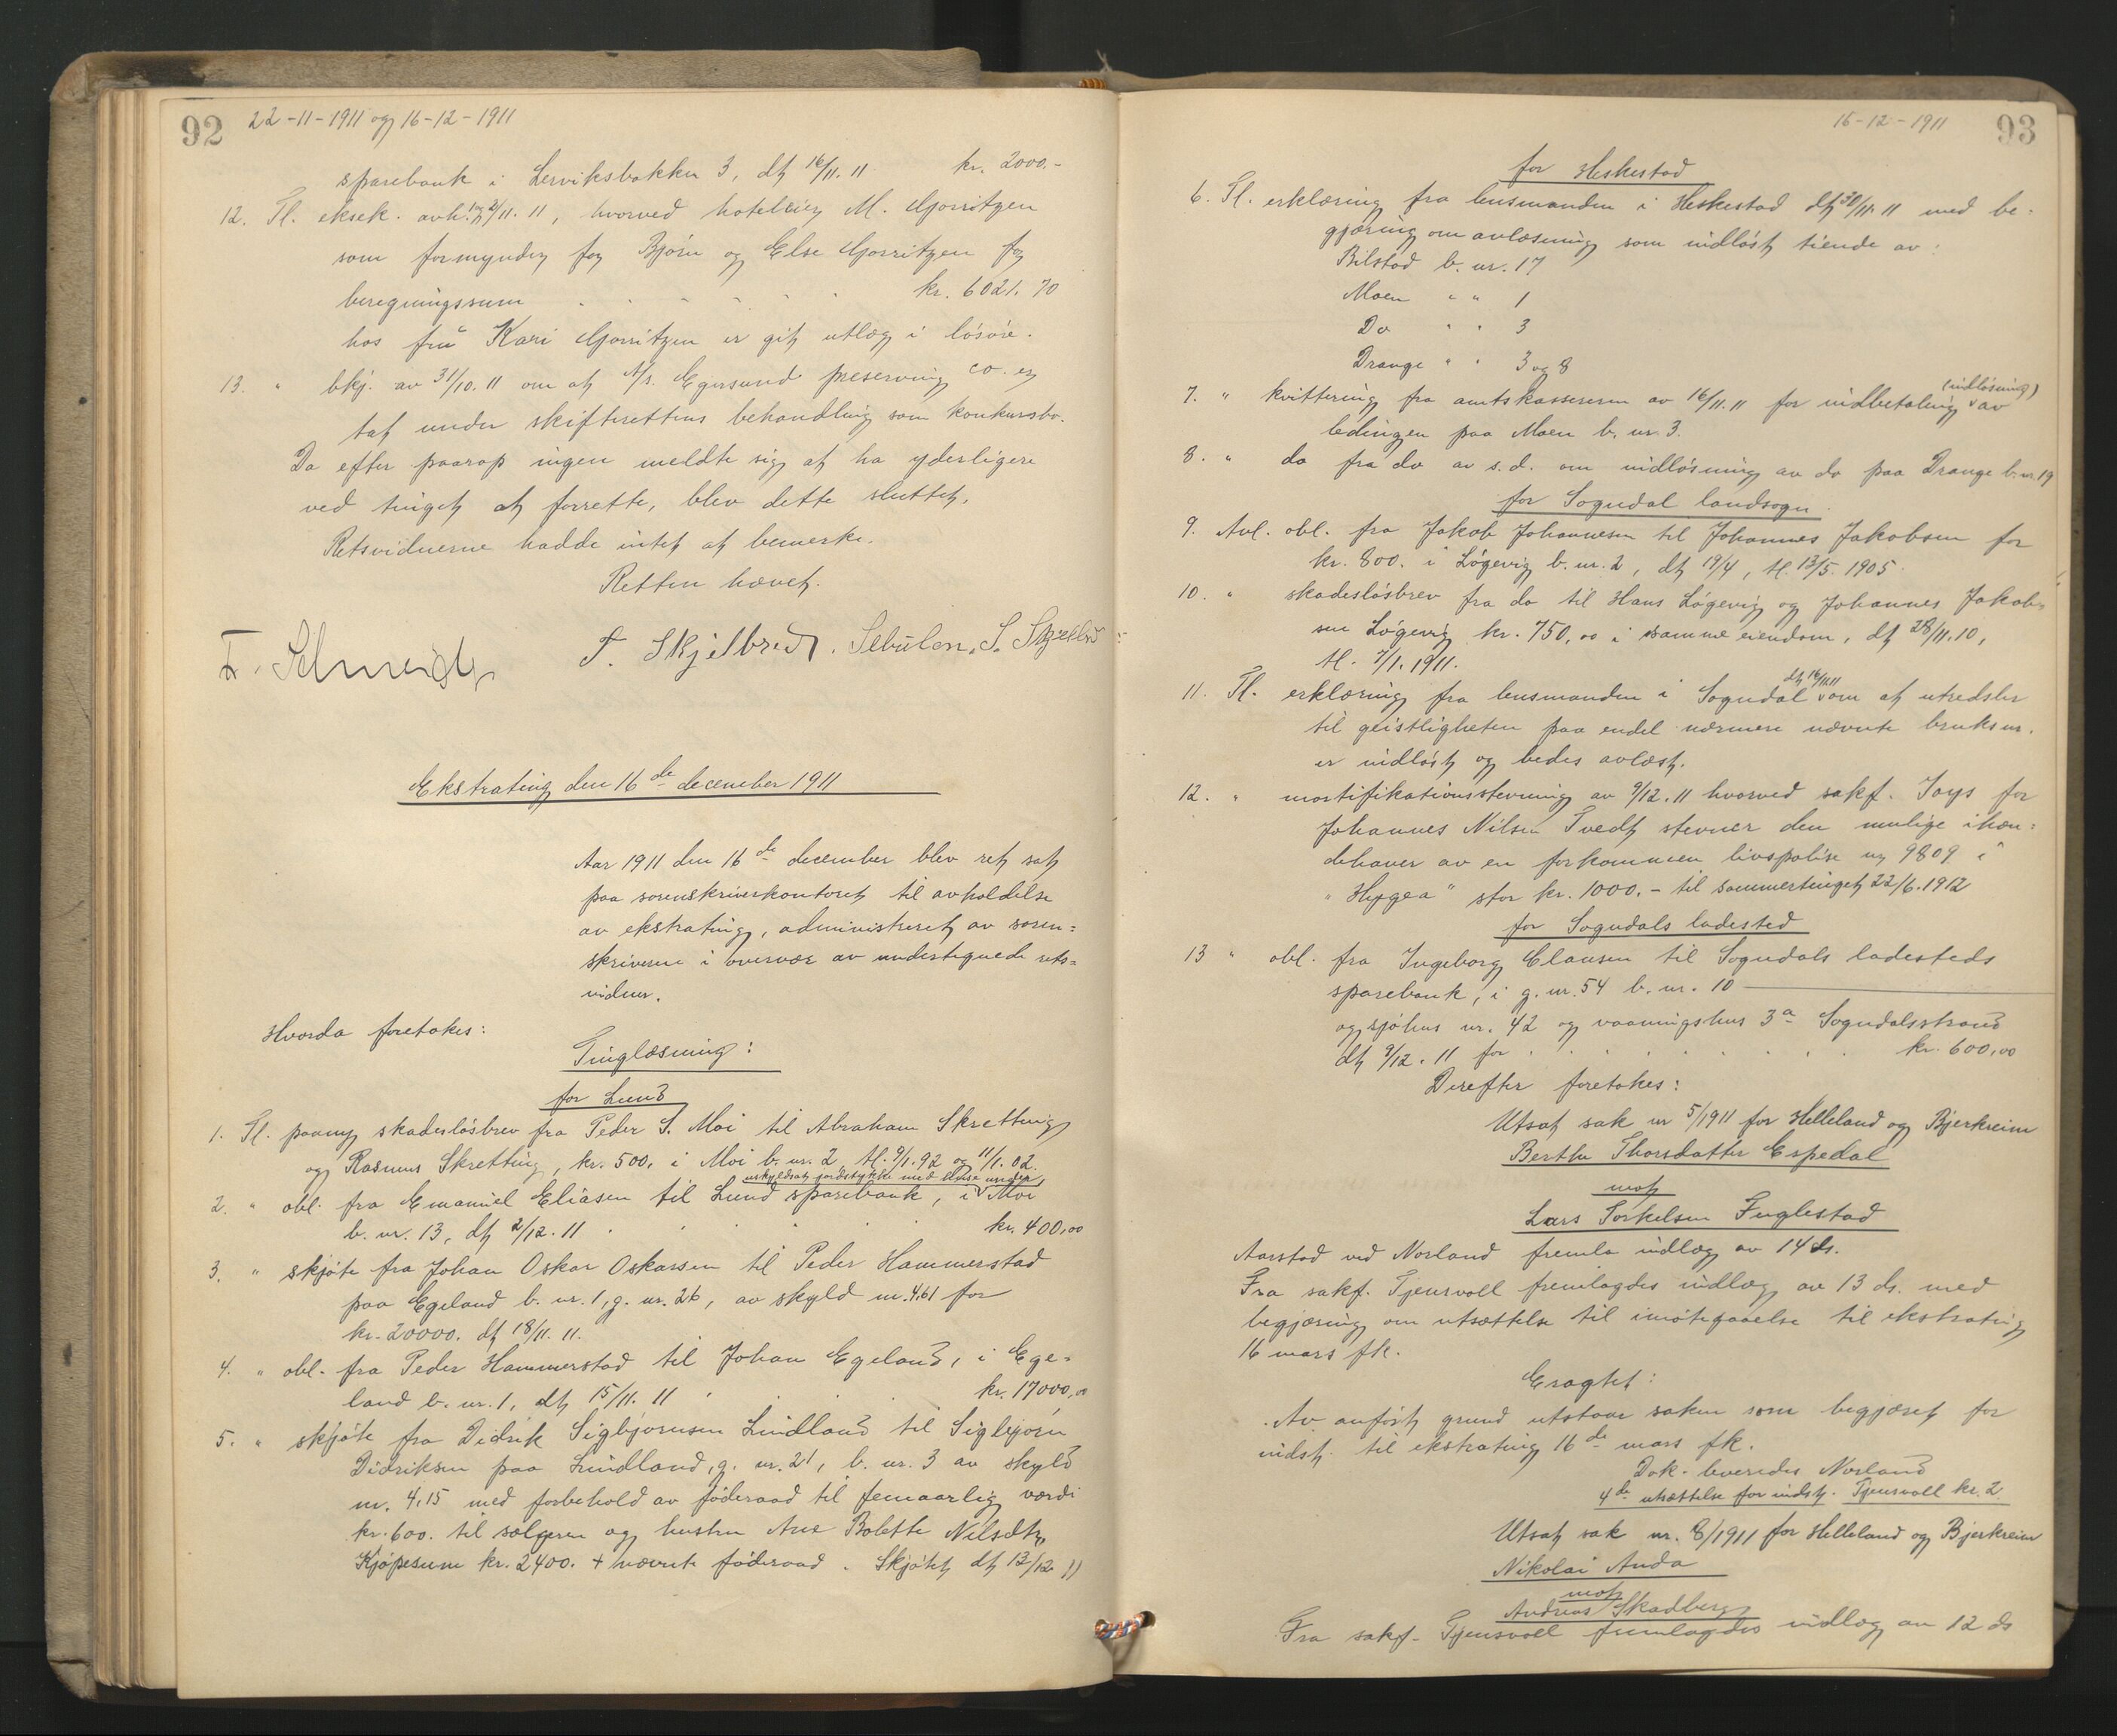 92 22-11-1911 og 16-12-1911
sparebank i Lerviksbakken 3, dt 16/11. 11 kr. 2000.-
12. Tl. eksek. avh. 1 og 2/11. 11, hvorved hoteleier M. Mauritzen
som formynder for Bjørn og Else Mauritzen for
beregningssum . . . . . kr. 6021. 70
hos frú Kari Mauritzen er git utlæg i løsøre.
13. " bkj. av 31/10. 11 om at A/s. Egersund preserving co. er
tat under skifterettens behandling som konkursbo.
Da efter paarop ingen meldte sig at ha yderligere
ved tinget at forrette, blev dette sluttet.
Retsvidnerne hadde intet at bemerke.
Retten hævet.
F. Schmidt T. Skjelbred. Sebulon. S.
Ekstrating den 16de december 1911
Aar 1911 den 16de december blev ret sat
paa sorenskriverkontoret til avholdelse
av ekstrating, administreret av soren=
skriveren i overvær av undertegnede rets=
vidner.
Hvorda foretokes:
Tinglæsning:
for Lund
1. Tl. paany skadesløsbrev fra Peder S. Moi til Abraham Skretting
og Rasmus Skretting, kr. 500. i Moi b. nr. 2, tl. 9/1. 92 og 11/1. 02.
uskyldsat jordstykke med huse under
2. " obl. fra Emanuel Eliasen til Lund sparebank, i v Moi
b. nr. 13, dt 2/12. 11 . . . . . kr. 400,00
3. " skjøte fra Johan Oskar Oskarsen til Peder Hammerstad
paa Egeland b. nr. 1, g. nr. 26, av skyld m. 4.61 for
kr. 20000. dt 18/11. 11.
4. " obl. fra Peder Hammerstad til Johan Egeland, i Ege=
land b. nr. 1, dt 15/11. 11 . . . kr. 17000,00
5. " skjøte fra Didrik Sigbjørnsen Lindland til Sigbjørn
Didriksen paa Lindland, g. nr. 21, b. nr. 3 av skyld
m. 4.15 med forbehold av føderaad til femaarlig værdi
kr. 600. til sælgeren og hustru Ane Bolette Nilsdtr.
Kjøpesum kr. 2400. + nævnte føderaad. Skjøtet dt 13/12 11
16-12-1911 93
for Heskestad
6. Tl. erklæring fra lensmanden i Heskestad dt 30/11. 11 med be-
gjæring om avlæsning som indløst tiende av:
Bilstad b. nr. 17
Moen " " 1
Do " " 3
Drange " " 3 og 8
7. " kvittering fra amtskassereren av 16/11. 11 for indbetaling v av
(indløsning)
ledingen paa Moen b. nr. 3.
8. " do fra do av s. d. om indløsning av do paa Drange b. nr. 19
for Sogndal landsogn
9. Avl. obl. fra Jakob Johannesen til Johannes Jakobsen for
kr. 800. i Løgevig b. nr. 2, dt 19/4, tl. 13/5. 1905
10. " skadesløsbrev fra do til Hans Løgevig og Johannes Jakob-
sen Løgevig kr. 750,00 i samme eiendom, dt 28/11. 10,
tl. 7/1. 1911.
11. Tl. erklæring fra lensmanden i Sogndal v om at utredsler
dt 16/11 11
til geistligheten paa endel nærmere nævnte bruksnr.
er indløst og bedes avlæst.
12. " mortifikationsstevning av 9/12. 11 hvorved sakf. Tays for
Johannes Nilsen Tvedt stevner den mulige ihæn=
dehaver av en forkommen livspolise nr 9809 i
"Hygea" stor kr. 1000.- til sommertinget 22/6. 1912
for Sogndals ladested
13 " obl. fra Ingeborg Clausen til Sogndals ladesteds
sparebank, i g. nr. 54 b. nr. 10
og sjøhus nr. 42 og vaaningshus 3a Sogndalsstrand
dt 9/12. 11 for . . . . . kr. 600,00
Derefter foretokes:
Utsat sak nr 5/1911 for Helleland og Bjerkreim
Berthe Thorsdatter Espedal
mot
Lars Torkelsen Fuglestad
Aarstad ved Norland fremla indlæg av 14 ds.
Fra sakf. Tjensvoll fremlagdes indlæg av 13 ds. med
begjæring om utsættelse til imøtegaaelse til ekstrating
16 mars fk.
Eragtet:
Av anført grund utstaar saken som begjæret for
indst. til ekstrating 16de mars fk.
Dok. leveredes Norland
4de utsættelse for indst. Tjensvoll kr. 2.
Utsat sak nr. 8/1911 for Helleland og Bjerkreim
Nikolai Anda
mot
Andreas Skadberg
Fra sakf. Tjensvoll fremlagdes indlæg av 12 ds